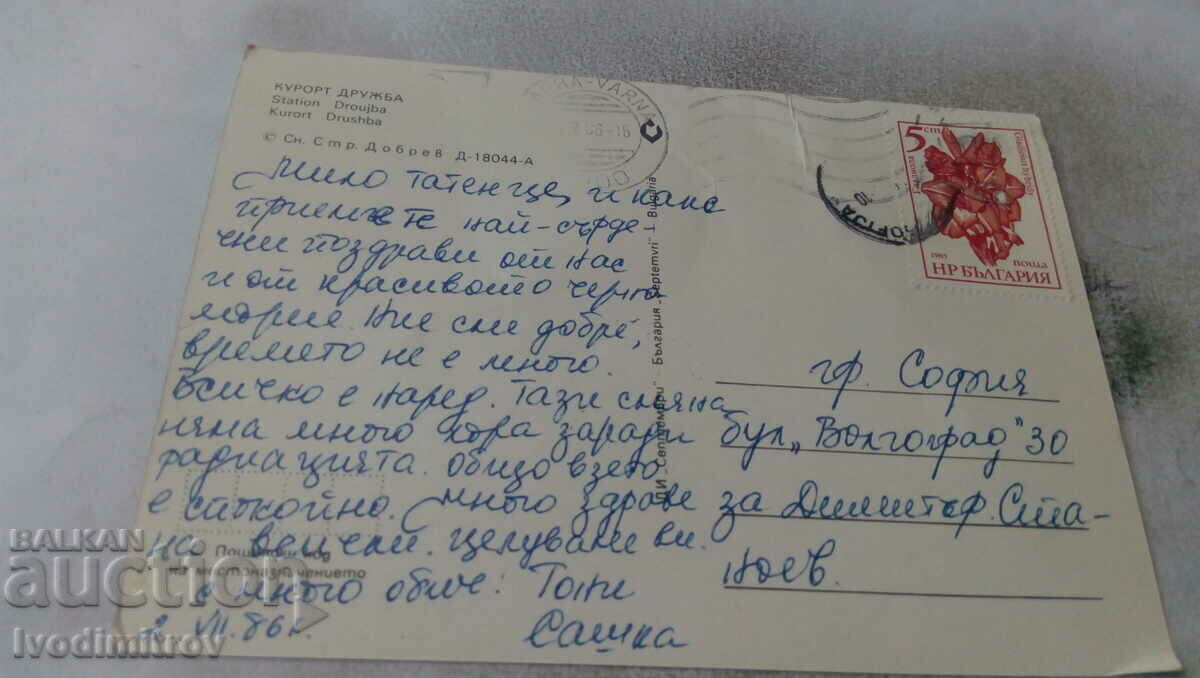 КУРОРТ ДРУЖБА
Station Droujba
Kurort Drushba
© Сн. Стр. Добрев Д-18044-А
Мило татенце, и како
приемете най-сърде
чни поздрави от нас
и от красивото черно
море. Ние сме добре,
времето не е много.
Всичко е наред. Тази
няма много хора заради
радиацията. Общо взето
е спокойно. Много здраве
на всички. Целуваме ви.
с много обич: Тони
Сашка
2. VII. 86 г.
Пощенски код
на местоназначението
"Септември" – България "Septemvri" – Bulgaria
VARNA
5 ст.
1985
поща
НР БЪЛГАРИЯ
гр. София
бул. "Волгоград" 30
за Димитър Ста-
ноев.
BALKAN
auction
Ivodimitrov